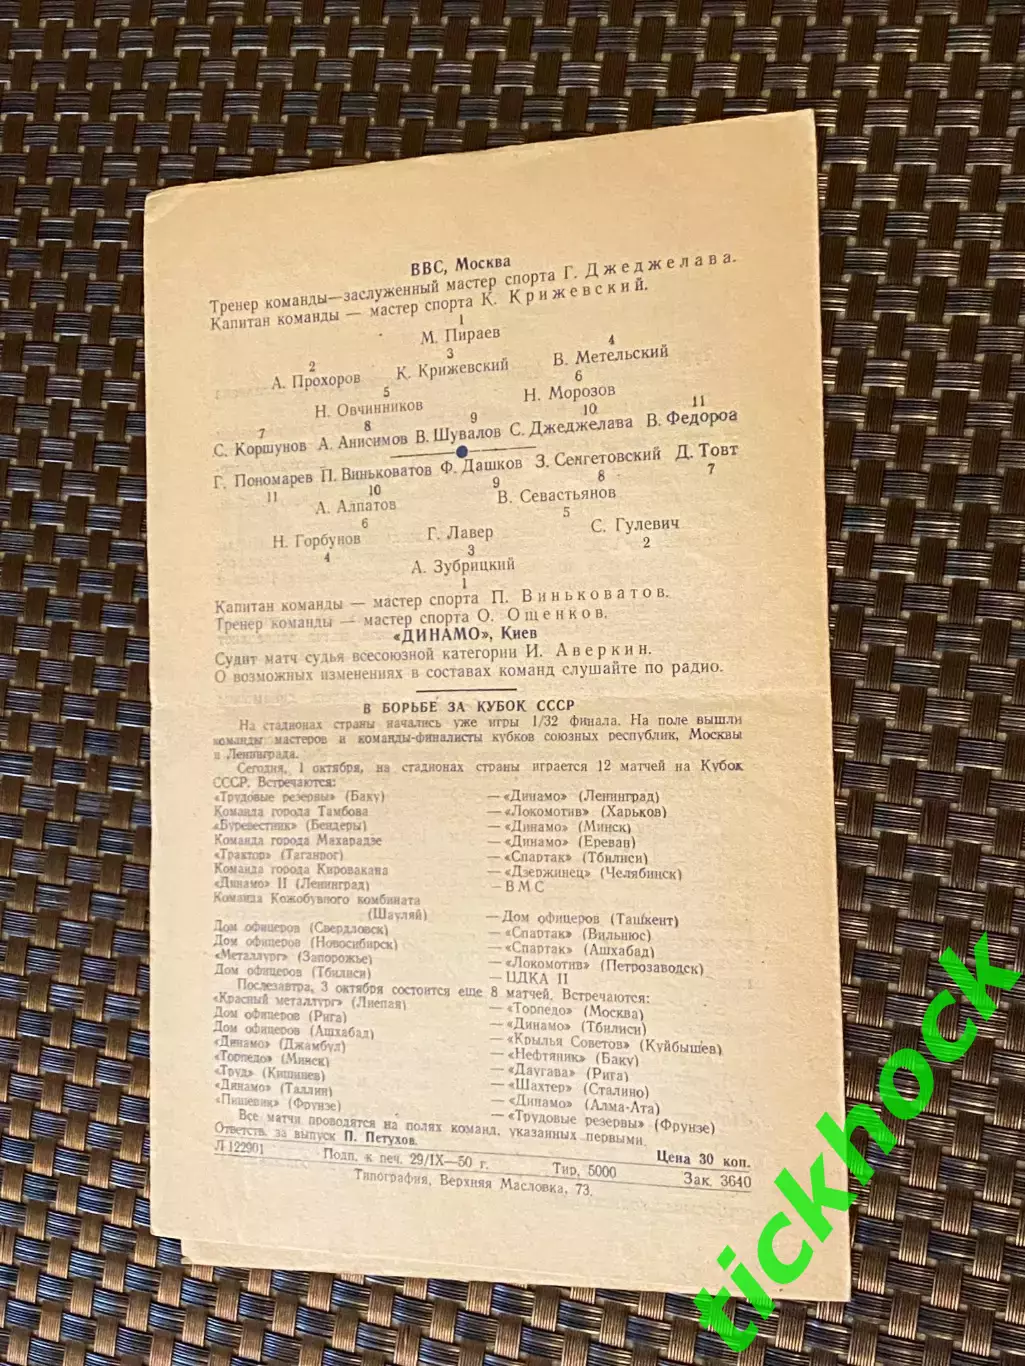 ВВС, Москва
Тренер команды—заслуженный мастер спорта Г. Джеджелава.
Капитан команды — мастер спорта К. Крижевский.
1
М. Пираев
2 3 4
А. Прохоров К. Крижевский В. Метельский
5 6
Н. Овчинников Н. Морозов
7 8 9 10 11
С. Коршунов А. Анисимов В. Шувалов С. Джеджелава В. Федороа
Г. Пономарев П. Виньковатов Ф. Дашков З. Сенгетовский Д. Товт
11 10 9 8 7
А. Алпатов В. Севастьянов
6 5
Н. Горбунов Г. Лавер С. Гулевич
4 3 2
А. Зубрицкий
1
Капитан команды — мастер спорта П. Виньковатов.
Тренер команды — мастер спорта О. Ошенков.
«ДИНАМО», Киев
Судит матч судья всесоюзной категории И. Аверкин.
О возможных изменениях в составах команд слушайте по радио.
В БОРЬБЕ ЗА КУБОК СССР
На стадионах страны начались уже игры 1/32 финала. На поле вышли
команды мастеров и команды-финалисты кубков союзных республик, Москвы
и Ленинграда.
Сегодня, 1 октября, на стадионах страны играется 12 матчей на Кубок
СССР. Встречаются:
«Трудовые резервы» (Баку) — «Динамо» (Ленинград)
Команда города Тамбова — «Локомотив» (Харьков)
«Буревестник» (Бендеры) — «Динамо» (Минск)
Команда города Махарадзе — «Динамо» (Ереван)
«Трактор» (Таганрог) — «Спартак» (Тбилиси)
Команда города Кировакана — «Дзержинец» (Челябинск)
«Динамо» II (Ленинград) — ВМС
Команда Кожобувного комбината
(Шауляй) — Дом офицеров (Ташкент)
Дом офицеров (Свердловск) — «Спартак» (Вильнюс)
Дом офицеров (Новосибирск) — «Спартак» (Ашхабад)
«Металлург» (Запорожье) — «Локомотив» (Петрозаводск)
Дом офицеров (Тбилиси) — ЦДКА II
Послезавтра, 3 октября состоится еще 8 матчей. Встречаются:
«Красный металлург» (Лиепая) — «Торпедо» (Москва)
Дом офицеров (Рига) — «Динамо» (Тбилиси)
Дом офицеров (Ашхабад) — «Крылья Советов» (Куйбышев)
«Динамо» (Джамбул) — «Нефтяник» (Баку)
«Торпедо» (Минск) — «Даугава» (Рига)
«Труд» (Кишинев) — «Шахтер» (Сталино)
«Динамо» (Таллин) — «Динамо» (Алма-Ата)
«Пищевик» (Фрунзе) — «Трудовые резервы» (Фрунзе)
Все матчи проводятся на полях команд, указанных первыми.
Ответств. за выпуск П. Петухов. Цена 30 коп.
Л 122901 Подп. к печ. 29/IX—50 г. Тир. 5000 Зак. 3640
Типография, Верхняя Масловка, 73.
tickhock